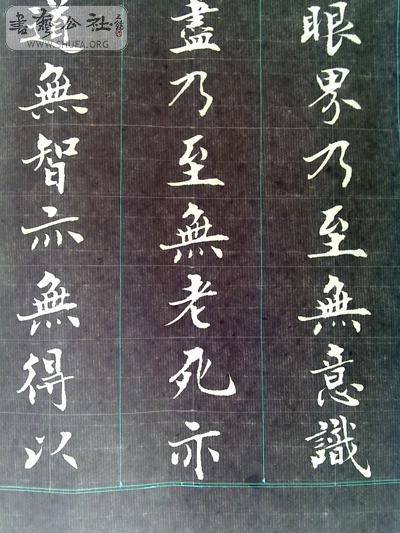 眼界乃至無意識
盡乃至無老死亦
道無智亦無得以
書藝公社
WWW.SHUFA.ORG